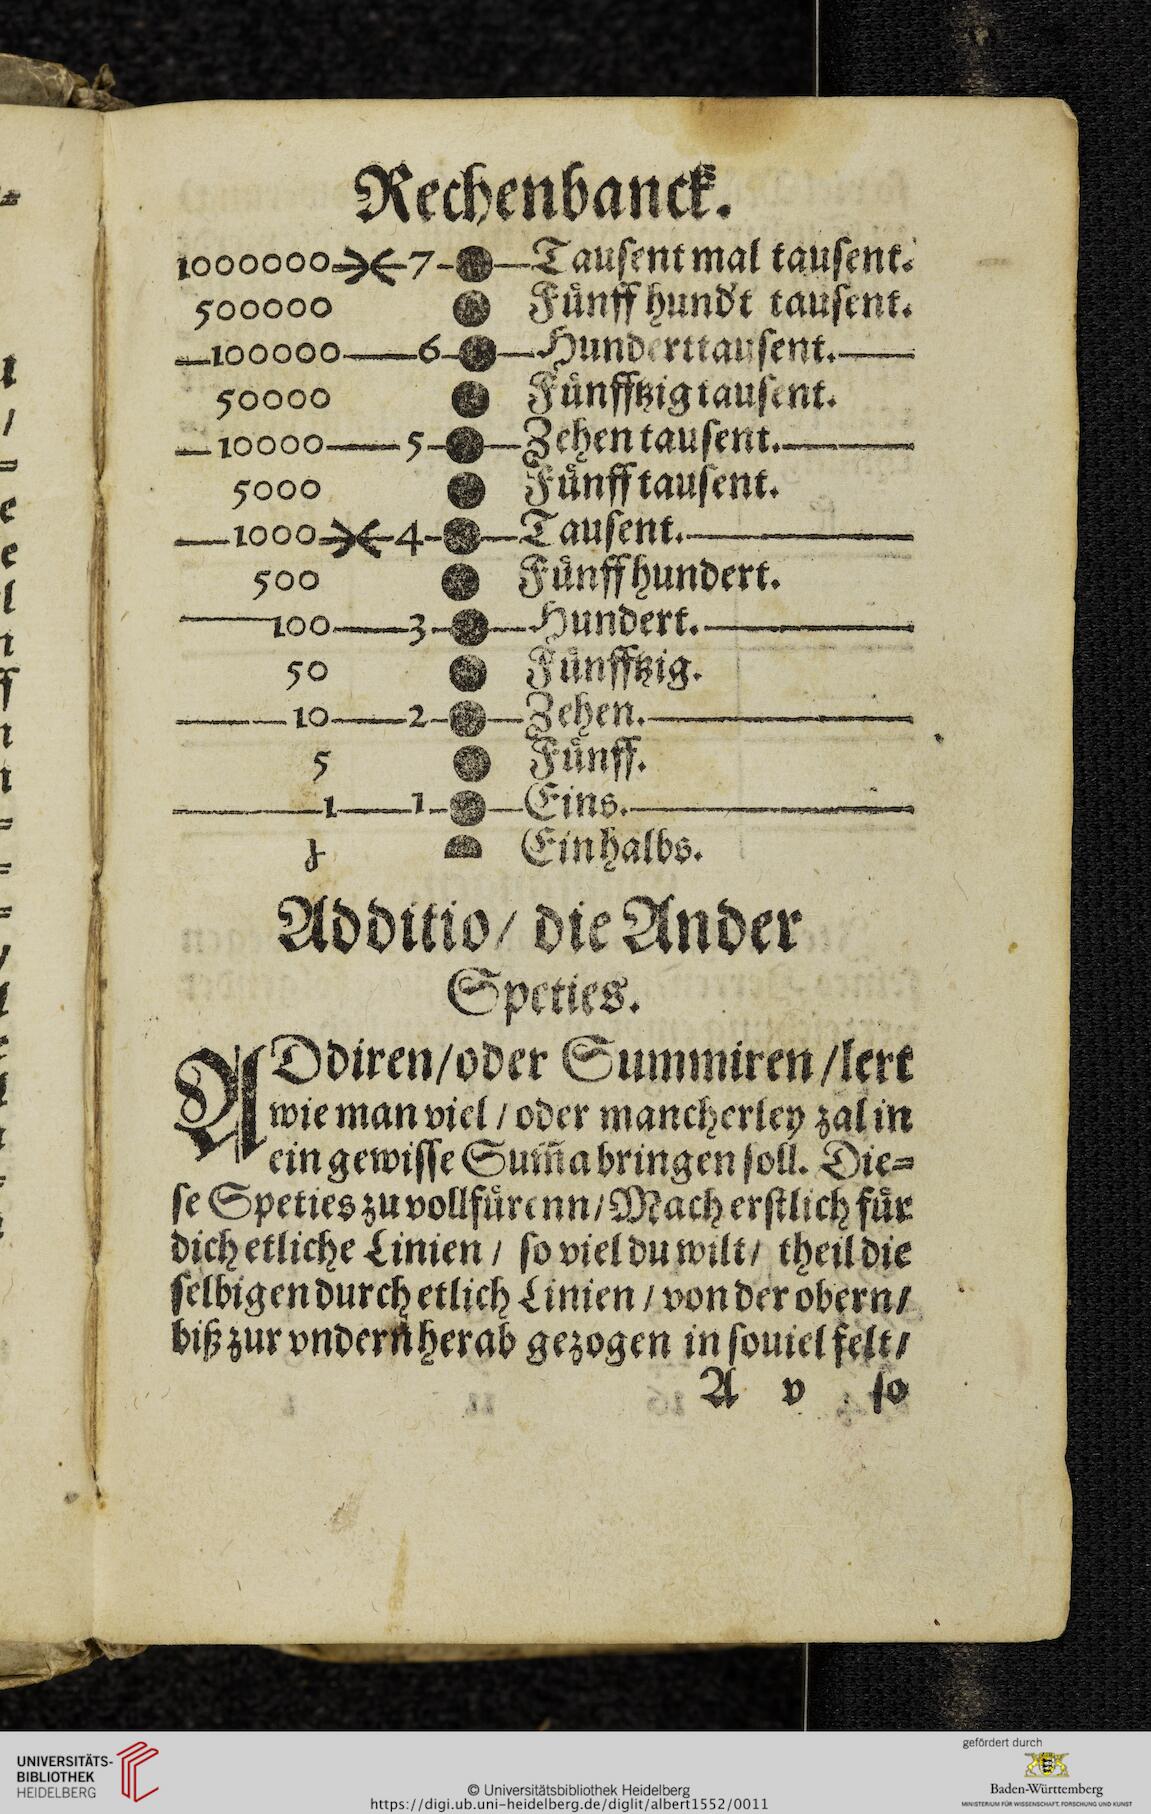 Rechenbanck.
1000000 7 Tausent mal tausent.
500000 Fünff hund't tausent.
100000 6 Hunderttausent.
50000 Fünfftzig tausent.
10000 5 Zehen tausent.
5000 Fünff tausent.
1000 4 Tausent.
500 Fünff hundert.
100 3 Hundert.
50 Fünfftzig.
10 2 Zehen.
5 Fünff.
1 1 Eins.
Einhalbs.
Additio/ die Ander
Speties.
ADdiren/oder Summiren/lert
wie man viel/oder mancherley zal in
ein gewisse Sum̃a bringen soll. Die=
se Speties zu vollfürenn/Mach erstlich für
dich etliche Linien/ so viel du wilt/ theil die
selbigen durch etlich Linien/von der obern/
biß zur vndern herab gezogen in souiel felt/
A v so
UNIVERSITÄTS-
BIBLIOTHEK
HEIDELBERG
© Universitätsbibliothek Heidelberg
https://digi.ub.uni-heidelberg.de/diglit/albert1552/0011
gefördert durch
Baden-Württemberg
MINISTERIUM FÜR WISSENSCHAFT, FORSCHUNG UND KUNST